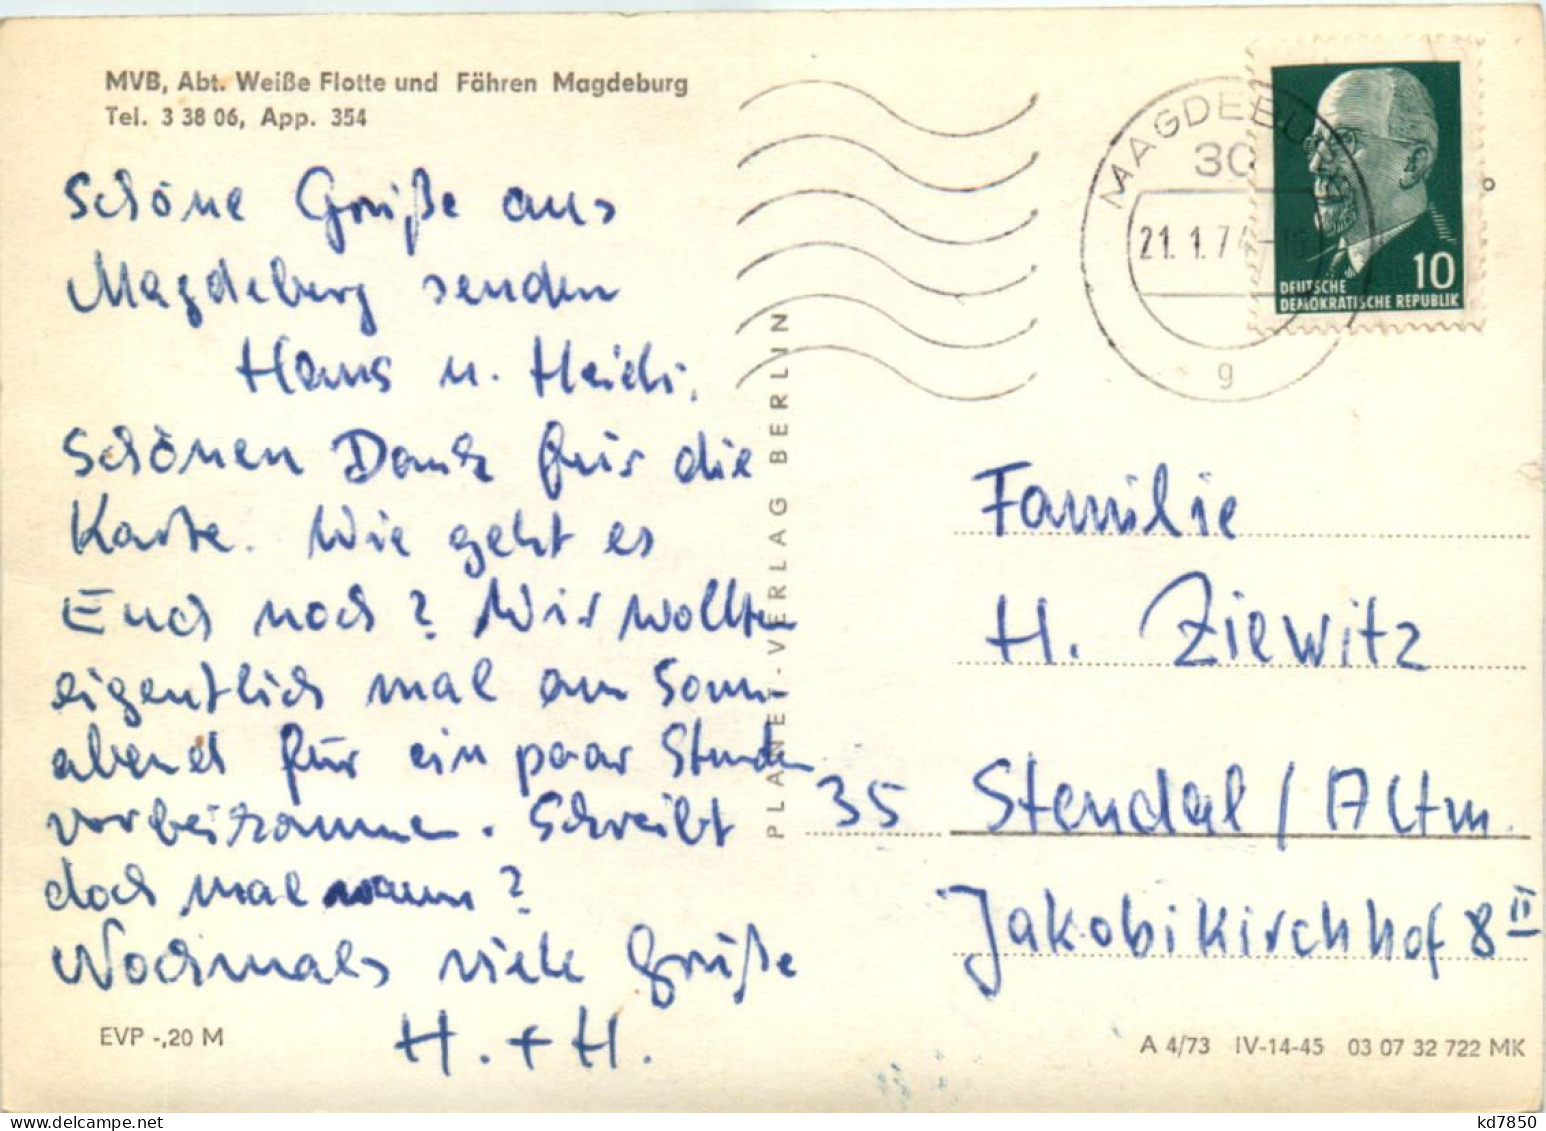 MVB, Abt. Weiße Flotte und Fähren Magdeburg
Tel. 3 38 06, App. 354
Schöne Grüße aus
Magdeburg senden
Hans u. Heidi.
Schönen Dank für die
Karte. Wie geht es
Euch noch? Wir wollten
eigentlich mal am Sonn-
abend für ein paar Stunden
vorbeikommen. Schreibt
doch mal wann?
Nochmals viele Grüße
H. + H.
EVP -,20 M
PLANET-VERLAG BERLIN
MAGDEBURG
30
21. 1. 74
g
10
DEUTSCHE
DEMOKRATISCHE REPUBLIK
Familie
H. Ziewitz
35 Stendal / Altm.
Jakobikirchhof 8 II
A 4/73 IV-14-45 03 07 32 722 MK
kd7850